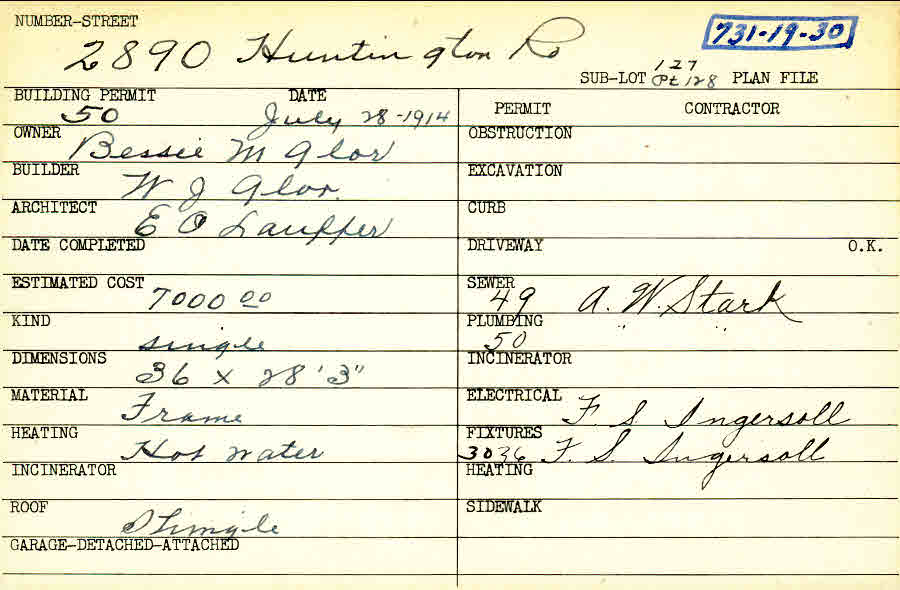 NUMBER-STREET
2890 Huntington Rd
731-19-30
SUB-LOT 127 Pt 128 PLAN FILE
BUILDING PERMIT DATE
50 July 28-1914
PERMIT CONTRACTOR
OWNER Bessie M Glor
OBSTRUCTION
BUILDER W J Glor.
EXCAVATION
ARCHITECT E O Lauffer
CURB
DATE COMPLETED
DRIVEWAY O.K.
ESTIMATED COST 7000 00
SEWER 49 A. W. Stark
KIND single
PLUMBING 50 " "
DIMENSIONS 36 x 28'3"
INCINERATOR
MATERIAL Frame
ELECTRICAL F. S. Ingersoll
HEATING Hot water
FIXTURES 3036 F. S. Ingersoll
INCINERATOR
HEATING
ROOF Shingle
SIDEWALK
GARAGE-DETACHED-ATTACHED